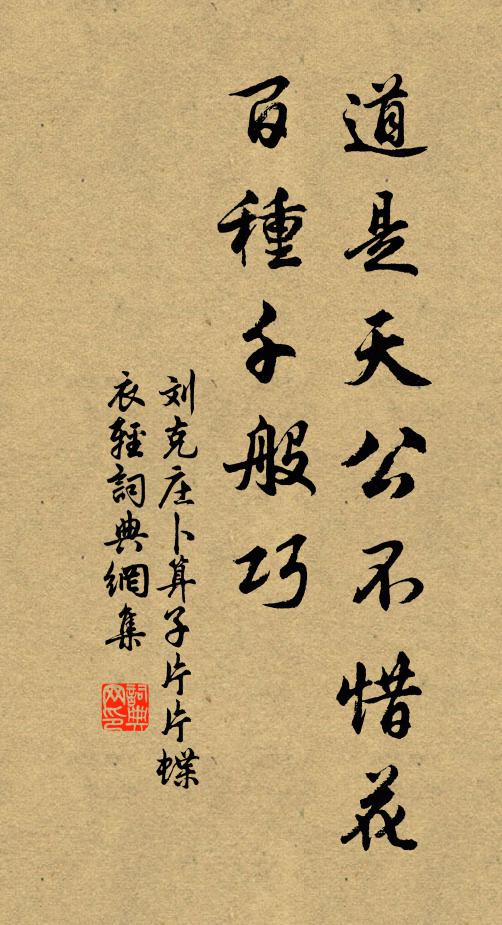 道是天公不惜花
百種千般巧
刘克庄卜算子片片蝶
衣輕詞典網集
詞典
网印